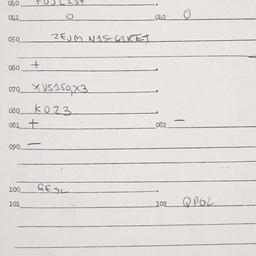 040 POJLLST
041 0 042 0
050 ZEJM N15T GIKET
060 +
070 XVS150,X3
080 K023
081 + 082 -
090 -
100 GESL
101 102 QPOL